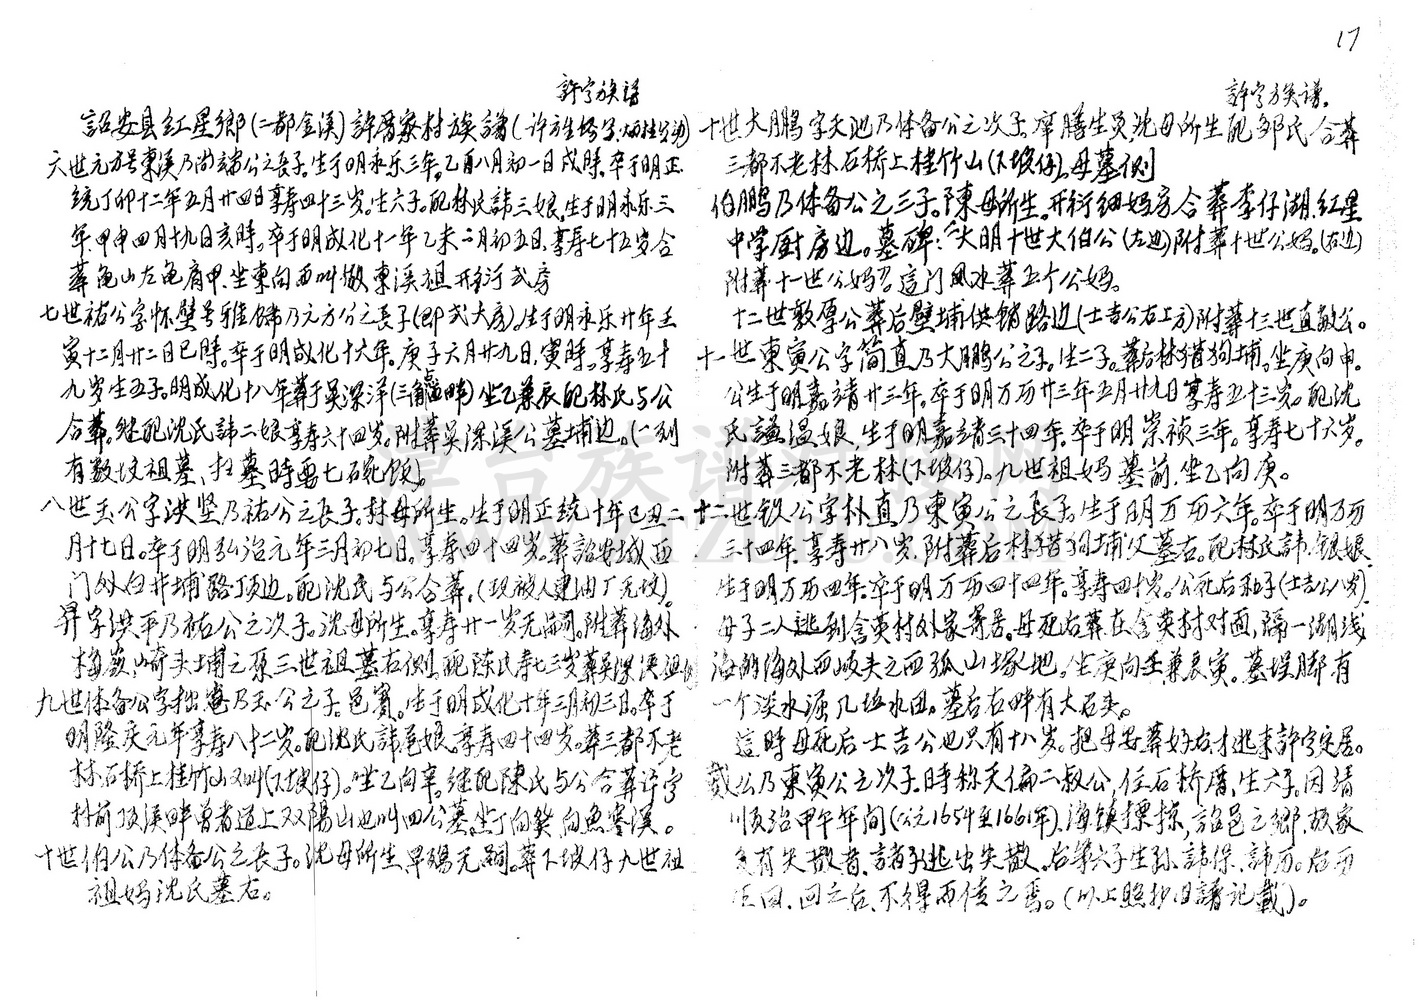 17
許字族譜
詔安县红星鄉(二都金溪)許厝寨村族譜(
六世元方号東溪乃尚端公之長子。生于明永乐三年。乙酉八月初一日戌時。卒于明正
統丁卯十二年五月廿四日享寿四十三岁。生六子。配林氏諱三娘。生于明永乐三
年。甲申四月十九日亥時。卒于明成化十一年乙未二月初五日。享寿七十五岁合
葬龟山左龟肩甲。坐東向西叫做東溪祖开衍弍房
七世祐公字怀璧号雅 乃元方公之長子(即弍大房)。生于明永乐廿年壬
寅十二月廿二日巳時。卒于明成化十六年。庚子六月廿九日。寅時。享寿五十
九岁生五子。明成化十八年葬于吴深洋(三角坵畔)坐乙兼辰配林氏与公
合葬。继配沈氏諱二娘享寿六十四岁。附葬吴深溪公墓埔边。(一列
有数坟祖墓、扫墓時要七石碗飯)。
八世玉公字洪坚乃祐公之長子。林母所生。生于明正統十年己丑二
月十七日。卒于明弘治元年三月初七日。享寿四十四岁。葬詔安城西
门外白井埔路顶边。配沈氏与公合葬。(现被人建油厂无坟)。
昇字洪平乃祐公之次子。沈母所生。享寿廿一岁无嗣。附葬海外
梅嶺山崎头埔之原三世祖墓右側。配陈氏寿七三岁葬吴深溪祖
九世体备公字拙 乃玉公之子。邑賓。生于明成化十年三月初三日。卒于
明隆庆元年享寿八十二岁。配沈氏諱邑娘。享寿四十四岁。葬三都不老
林石桥上桂竹山又叫(下坡仔)。坐乙向辛。继配陳氏与公合葬许字
村前顶溪畔曾者道上双陽山也叫四公墓。坐丁向癸向魚寒溪。
十世伯公乃体备公之長子。沈母所生早殤无嗣。葬下坡仔九世祖
祖妈沈氏墓右。
許字族譜。
十世大鵬字天池乃体备公之次子。庠膳生员。沈母所生配邹氏合葬
三都不老林石桥上桂竹山(下坡仔)。母墓側
伯鵬乃体备公之三子。陳母所生。开衍細妈房合葬李仔湖。红星
中学厨房边。墓碑：“大明十世大伯公(左边)附葬十世公妈。(右边)
附葬十一世公妈”這门風水葬五个公妈。
十二世敦厚公葬后壁埔供销路边(士吉公右上方)附葬十三世直敏公。
十一世東寅公字简直乃大鵬公之子。生二子。葬后林猪狗埔。坐庚向申。
公生于明嘉靖廿三年。卒于明万历廿三年五月廿九日享寿五十三岁。配沈
氏諡温娘。生于明嘉靖三十四年。卒于明崇祯三年。享寿七十六岁。
附葬三都不老林(下坡仔)。九世祖妈墓前。坐乙向庚。
十二世欽公字朴直乃東寅公之長子。生于明万历六年。卒于明万历
三十四年。享寿廿八岁。附葬后林猪狗埔父墓右。配林氏諱銀娘
生于明万历四年。卒于明万历四十四年。享寿四十岁。公死后和子(士吉公八岁)
母子二人逃到含英村外家寄居。母死右葬在含英村对面，隔一湖浅
海的海外西岐头之西孤山塚地。坐庚向壬兼辰寅。墓埕脚有
一个淡水源几坵水田。墓后右畔有大石头。
這時母死后士吉公也只有十八岁。把母安葬好右才逃来許字定居。
戴公乃東寅公之次子。時称天倫二叔公。住石桥厝。生六子。因清
順治甲午年間(公元1654至1661年)。海镇摽掠，詔邑之鄉。故家
多有失散者。諸子逃出失散。后第六子生孙諱保、諱历。后历
回。回之后、不得而傳之焉。(以上照抄旧譜记載)。